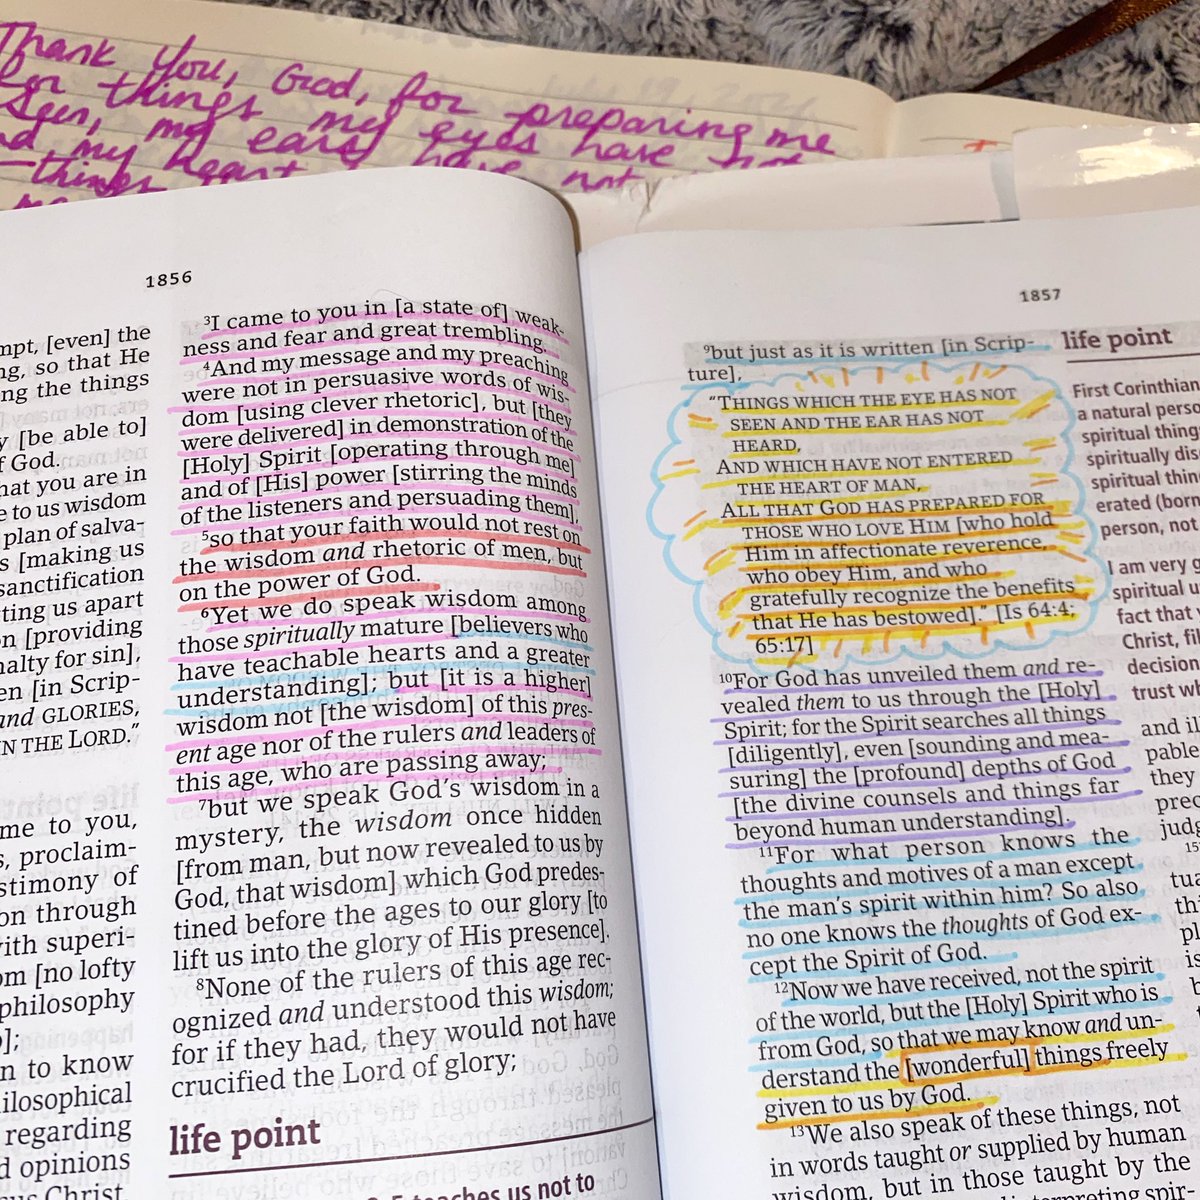 Thank You, God, for preparing me
for things my eyes have not
seen, my ears have
and my heart have not
—things
1856
mpt, [even] the
ng, so that He
ng the things
y [be able to]
f God.
hat you are in
e to us wisdom
plan of salva-
s [making us
sanctification
ting us apart
on [providing
nalty for sin],
en [in Scrip-
and GLORIES,
N THE LORD."
me to you,
s, proclaim-
stimony of
on through
with superi-
om [no lofty
philosophy
];
n to know
ilosophical
regarding
d opinions
us Christ,
3I came to you in [a state of] weak-
ness and fear and great trembling.
4And my message and my preaching
were not in persuasive words of wis-
dom [using clever rhetoric], but [they
were delivered] in demonstration of the
[Holy] Spirit [operating through me]
and of [His] power [stirring the minds
of the listeners and persuading them],
5so that your faith would not rest on
the wisdom and rhetoric of men, but
on the power of God.
6Yet we do speak wisdom among
those spiritually mature [believers who
have teachable hearts and a greater
understanding]; but [it is a higher]
wisdom not [the wisdom] of this pres-
ent age nor of the rulers and leaders of
this age, who are passing away;
7but we speak God's wisdom in a
mystery, the wisdom once hidden
[from man, but now revealed to us by
God, that wisdom] which God predes-
tined before the ages to our glory [to
lift us into the glory of His presence].
8None of the rulers of this age rec-
ognized and understood this wisdom;
for if they had, they would not have
crucified the Lord of glory;
life point
teaches us not to
1857
9but just as it is written [in Scrip-
ture],
"THINGS WHICH THE EYE HAS NOT
SEEN AND THE EAR HAS NOT
HEARD,
AND WHICH HAVE NOT ENTERED
THE HEART OF MAN,
ALL THAT GOD HAS PREPARED FOR
THOSE WHO LOVE HIM [who hold
Him in affectionate reverence,
who obey Him, and who
gratefully recognize the benefits
that He has bestowed]." [Is 64:4;
65:17]
10For God has unveiled them and re-
vealed them to us through the [Holy]
Spirit; for the Spirit searches all things
[diligently], even [sounding and mea-
suring] the [profound] depths of God
[the divine counsels and things far
beyond human understanding].
11For what person knows the
thoughts and motives of a man except
the man's spirit within him? So also
no one knows the thoughts of God ex-
cept the Spirit of God.
12Now we have received, not the spirit
of the world, but the [Holy] Spirit who is
from God, so that we may know and un-
derstand the [wonderful] things freely
given to us by God.
13We also speak of these things, not
in words taught or supplied by human
wisdom, but in those taught by the
life point
First Corinthian
a natural perso
spiritual thing
spiritually dis
spiritual thin
erated (born
person, not
I am very g
spiritual u
fact that
Christ, fil
decision
trust wh
and il
pable
they
prec
judg
15
tua
thi
pl
is